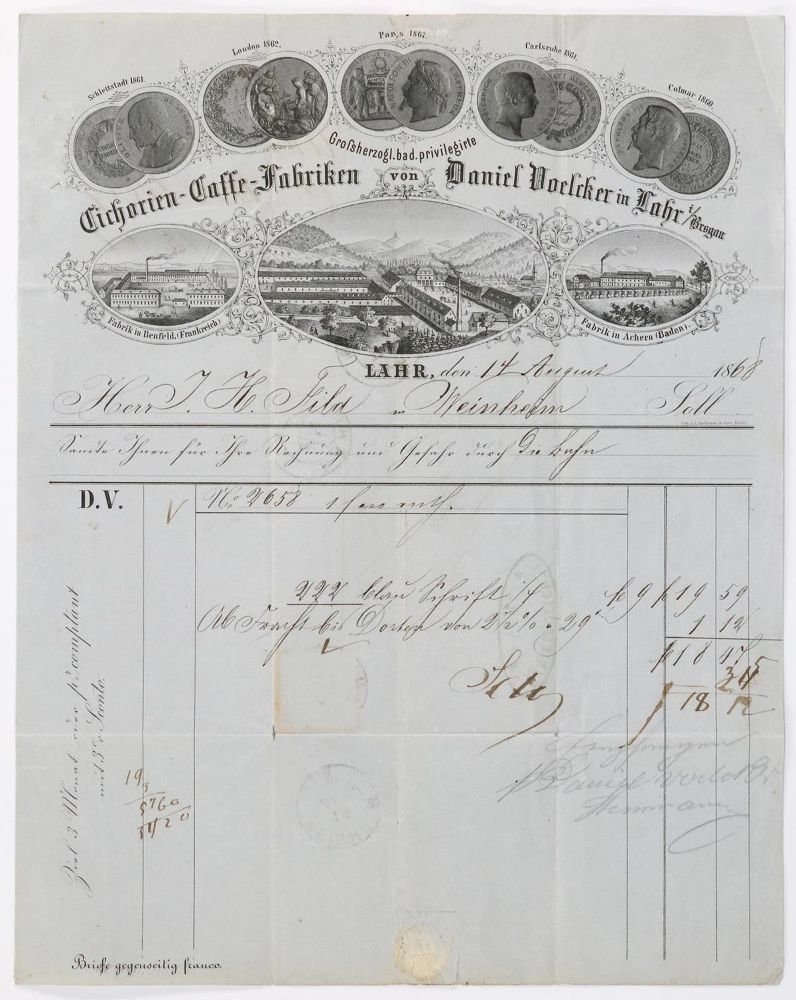 Schlettstadt 1861.
London 1862.
Paris 1867.
Carlsruhe 1861.
Colmar 1860.
Großherzogl. bad. privilegirte
Cichorien-Caffe-Fabriken von Daniel Voelcker in Lahr i/Brsgau
Fabrik in Benfeld, (Frankreich)
Fabrik in Achern (Baden).
LAHR, den 14 August 1868
Herr J. H. Fild in Weinheim Soll
Sandte Ihnen für Ihre Rechnung und Gefahr durch die Bahn
D.V.
No 2658 1
222 blau Schrift 9 19 59
Ab Fracht bis von 2 1/2 % 29 1 12
18 47
18 12
Daniel Voelcker
19
5760
Ziel 3 Monat oder pr. comptant
mit 3% Sconto.
Briefe gegenseitig franco.